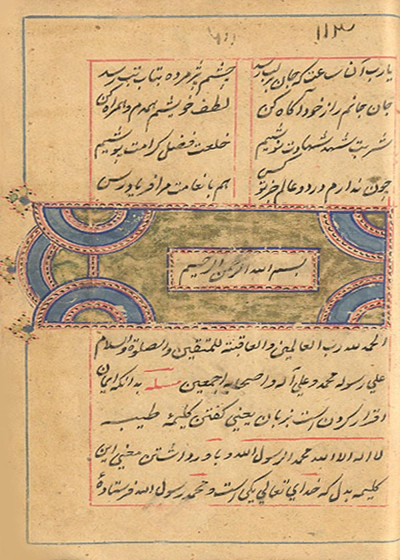 ۱۱۳
یا رب آن ساعت که جان بر لب رسد چشم پژمرده بتاب تب رسد
جان جانم را ز خود آگاه کن لطف خویشم همدم و همراه کن
شربت شهد شهادت نوشیم خلعت فضل کرامت پوشیم
چون ندارم در دو عالم جز تو کس هم بانعامت مرا فریاد رس
بسم الله الرحمن الرحیم
الحمد لله رب العالمین والعاقبته للمتقین والصلوة والسلام
علی رسوله محمد و علی آله و اصحابه اجمعین مسله بدانکه ایمان
اقرار کردن است بزبان یعنی گفتن کلیمۀ طیبه
لا اله الا الله محمد الرسول الله و باور داشتن معنی این
کلیمه بدل که خدای تعالی یکی است و محمد رسول الله فرستادۀ